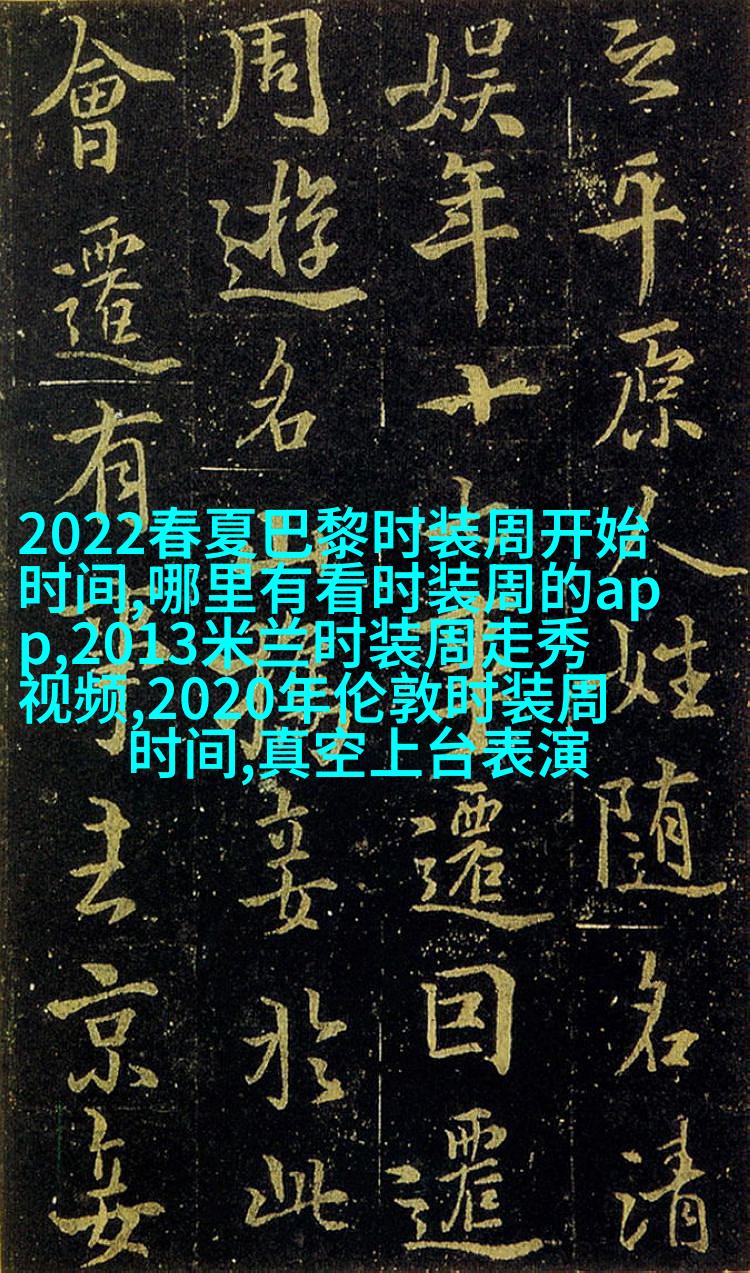 之平原人姓随名清
娱年十遷因遷
周遊名山妾於此
會遷有事去京妾
2022春夏巴黎时装周开始
时间,哪里有看时装周的ap
p,2013米兰时装周走秀
视频,2020年伦敦时装周
时间,真空上台表演